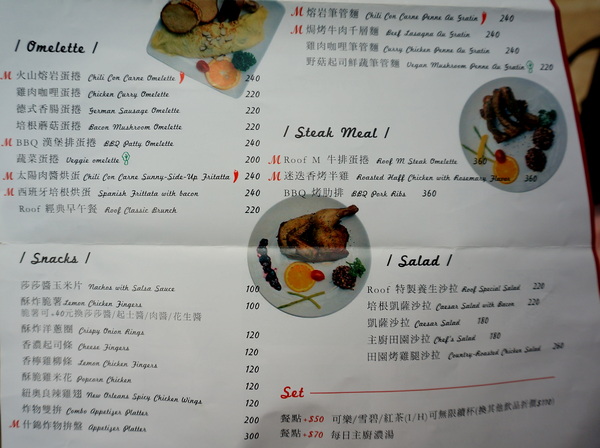 / Omelette /
M 火山熔岩蛋捲 Chili Con Carne Omelette 240
雞肉咖哩蛋捲 Chicken Curry Omelette 220
德式香腸蛋捲 German Sausage Omelette 220
培根蘑菇蛋捲 Bacon Mushroom Omelette 220
M BBQ 漢堡排蛋捲 BBQ Patty Omelette 240
蔬菜蛋捲 Veggie omelette 200
M 太陽肉醬烘蛋 Chili Con Carne Sunny-Side-Up Fritatta 240
M 西班牙培根烘蛋 Spanish Frittata with bacon 240
Roof 經典早午餐 Roof Classic Brunch 220
/ Snacks /
莎莎醬玉米片 Nachos with Salsa Sauce 100
酥炸脆薯 Lemon Chicken Fingers 100
脆薯可+40元換莎莎醬/起士醬/肉醬/花生醬
酥炸洋蔥圈 Crispy Onion Rings 120
香濃起司條 Cheese Fingers 120
香檸雞柳條 Lemon Chicken Fingers 120
酥脆雞米花 Popcorn Chicken 120
紐奧良辣雞翅 New Orleans Spicy Chicken Wings 120
炸物雙拼 Combo Appetizer Platter 200
M 什錦炸物拼盤 Appetizer Platter 300
M 熔岩筆管麵 Chili Con Carne Penne Au Gratin 240
M 焗烤牛肉千層麵 Beef Lasagna Au Gratin 240
雞肉咖哩筆管麵 Curry Chicken Penne Au Gratin 240
野菇起司鮮蔬筆管麵 Vegan Mushroom Penne Au Gratin 220
/ Steak Meal /
M Roof M 牛排蛋捲 Roof M Steak Omelette 360
M 迷迭香烤半雞 Roasted Half Chicken with Rosemary Flavor 360
BBQ 烤肋排 BBQ Pork Ribs 360
/ Salad /
Roof 特製養生沙拉 Roof Special Salad 220
培根凱薩沙拉 Caesar Salad with Bacon 220
凱薩沙拉 Caesar Salad 180
主廚田園沙拉 Chef's Salad 180
田園烤雞腿沙拉 Country-Roasted Chicken Salad 260
Set
餐點 +$50 可樂/雪碧/紅茶(I/H)可無限續杯(換其他飲品折價$110)
餐點 +$70 每日主廚濃湯